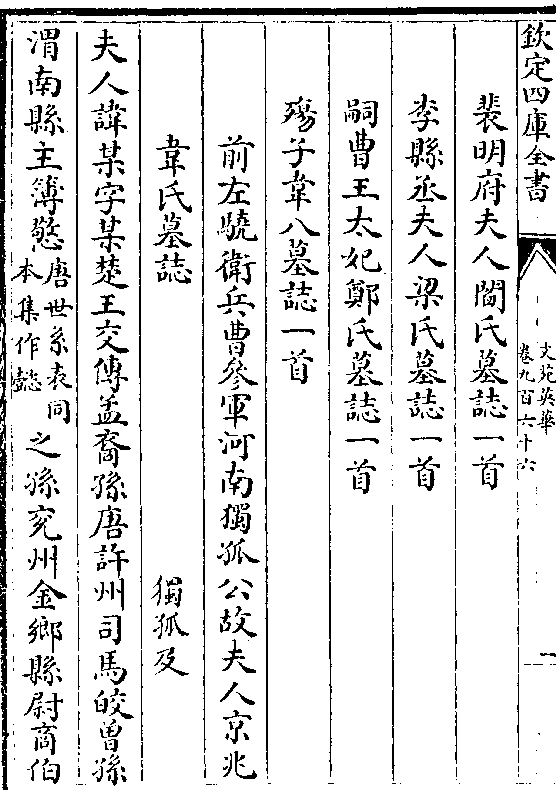 欽定四庫全書
文苑英華
卷九百六十六
一
裴明府夫人閻氏墓誌一首
李縣丞夫人梁氏墓誌一首
嗣曹王太妃鄭氏墓誌一首
殤子韋八墓誌一首
前左驍衛兵曹參軍河南獨孤公故夫人京兆
韋氏墓誌 獨孤及
夫人諱某字某楚王交傅孟裔孫唐許州司馬皎曾孫
渭南縣主簿憗唐世系表同本集作懿之孫兖州金鄉縣尉商伯